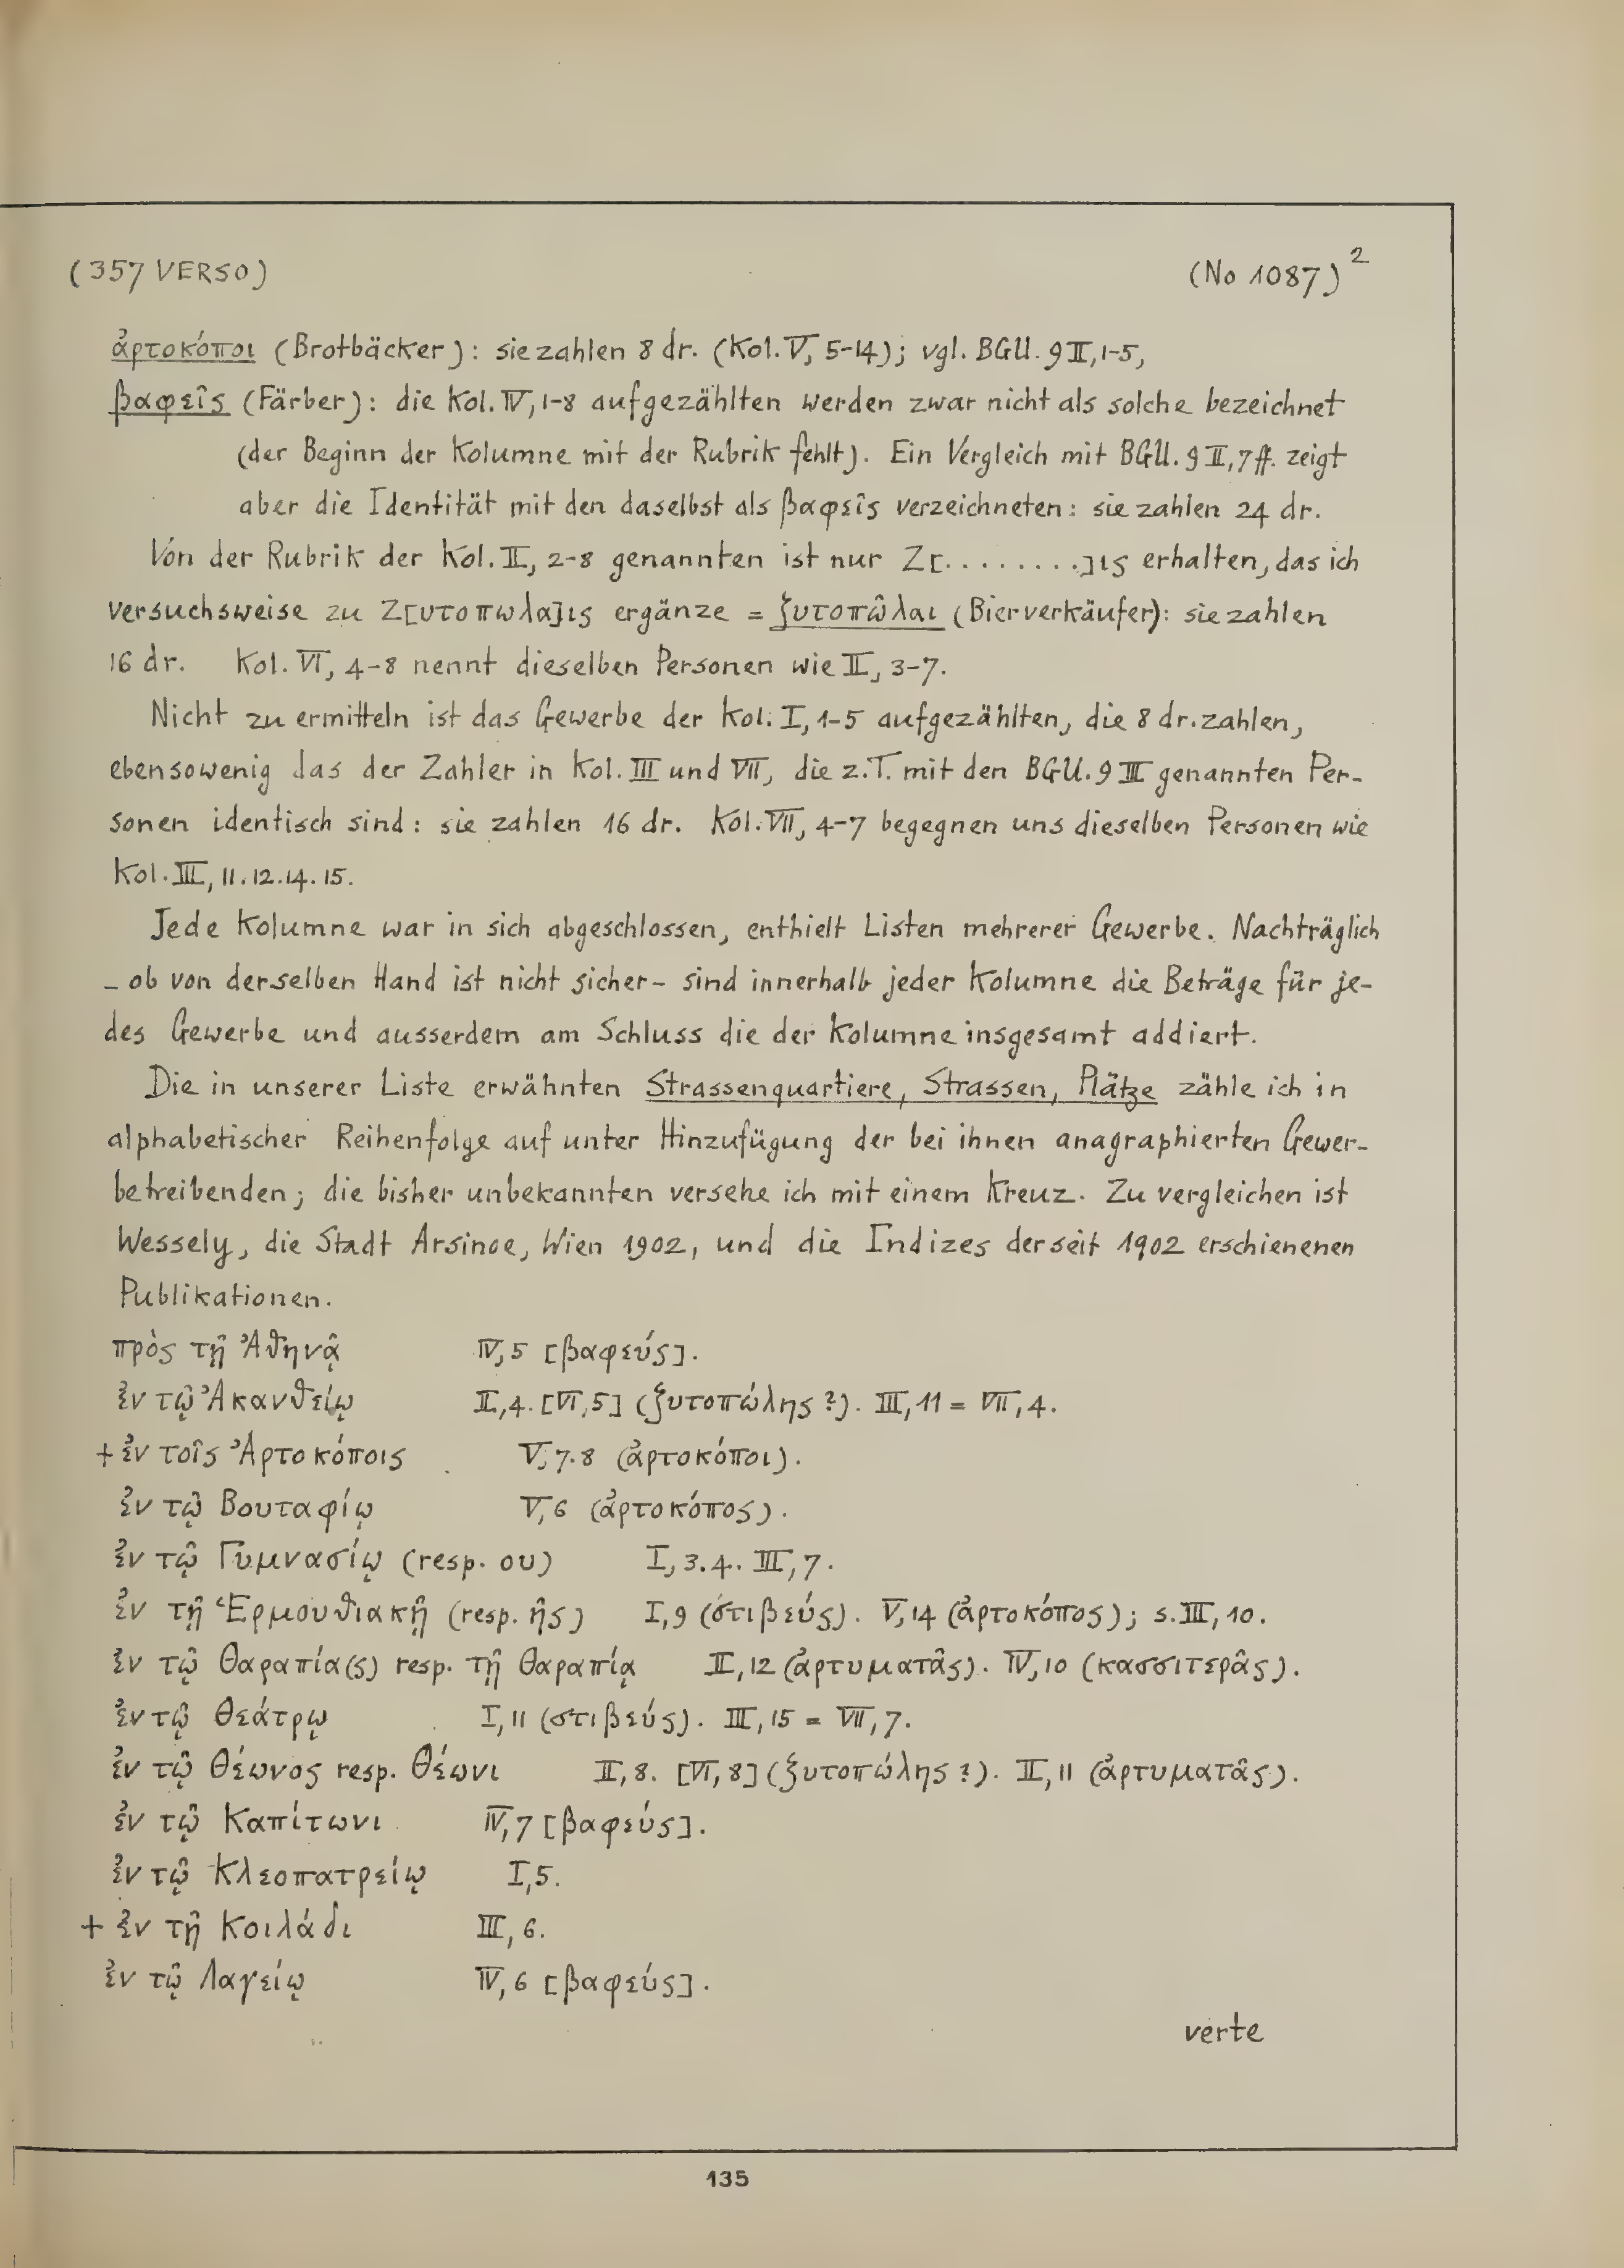 (357 VERSO)
(No 1087)²
ἀρτοκόποι (Brotbäcker): sie zahlen 8 dr. (Kol. V, 5-14); vgl. BGU. 9 II, 1-5,
βαφεῖς (Färber): die Kol. IV, 1-8 aufgezählten werden zwar nicht als solche bezeichnet
(der Beginn der Kolumne mit der Rubrik fehlt). Ein Vergleich mit BGU. 9 II, 7 ff. zeigt
aber die Identität mit den daselbst als βαφεῖς verzeichneten: sie zahlen 24 dr.
Von der Rubrik der Kol. II, 2-8 genannten ist nur Ζ[........]ις erhalten, das ich
versuchsweise zu Ζ[υτοπωλα]ις ergänze = ζυτοπῶλαι (Bierverkäufer): sie zahlen
16 dr. Kol. VI, 4-8 nennt dieselben Personen wie II, 3-7.
Nicht zu ermitteln ist das Gewerbe der Kol. I, 1-5 aufgezählten, die 8 dr. zahlen,
ebensowenig das der Zahler in Kol. III und VII, die z.T. mit den BGU. 9 III genannten Per-
sonen identisch sind: sie zahlen 16 dr. Kol. VII, 4-7 begegnen uns dieselben Personen wie
Kol. III, 11. 12. 14. 15.
Jede Kolumne war in sich abgeschlossen, enthielt Listen mehrerer Gewerbe. Nachträglich
- ob von derselben Hand ist nicht sicher - sind innerhalb jeder Kolumne die Beträge für je-
des Gewerbe und ausserdem am Schluss die der Kolumne insgesamt addiert.
Die in unserer Liste erwähnten Strassenquartiere, Strassen, Plätze zähle ich in
alphabetischer Reihenfolge auf unter Hinzufügung der bei ihnen anagraphierten Gewer-
betreibenden; die bisher unbekannten versehe ich mit einem Kreuz. Zu vergleichen ist
Wessely, die Stadt Arsinoe, Wien 1902, und die Indizes der seit 1902 erschienenen
Publikationen.
πρὸς τῇ Ἀθηνᾷ IV, 5 [βαφεύς].
ἐν τῷ Ἀκανθείῳ II, 4. [VI, 5] (ζυτοπώλης?). III, 11 = VII, 4.
+ ἐν τοῖς Ἀρτοκόποις V, 7. 8 (ἀρτοκόποι).
ἐν τῷ Βουταφίῳ V, 6 (ἀρτοκόπος).
ἐν τῷ Γυμνασίῳ (resp. ου) I, 3. 4. III, 7.
ἐν τῇ Ἑρμουθιακῇ (resp. ῆς) I, 9 (στιβεύς). V, 14 (ἀρτοκόπος); s. III, 10.
ἐν τῷ Θαραπία(ς) resp. τῇ Θαραπίᾳ II, 12 (ἀρτυματᾶς). IV, 10 (κασσιτερᾶς).
ἐν τῷ Θεάτρῳ I, 11 (στιβεύς). III, 15 = VII, 7.
ἐν τῷ Θέωνος resp. Θέωνι II, 8. [VI, 8] (ζυτοπώλης?). II, 11 (ἀρτυματᾶς).
ἐν τῷ Καπίτωνι IV, 7 [βαφεύς].
ἐν τῷ Κλεοπατρείῳ I, 5.
+ ἐν τῇ Κοιλάδι III, 6.
ἐν τῷ Λαγείῳ IV, 6 [βαφεύς].
verte
135